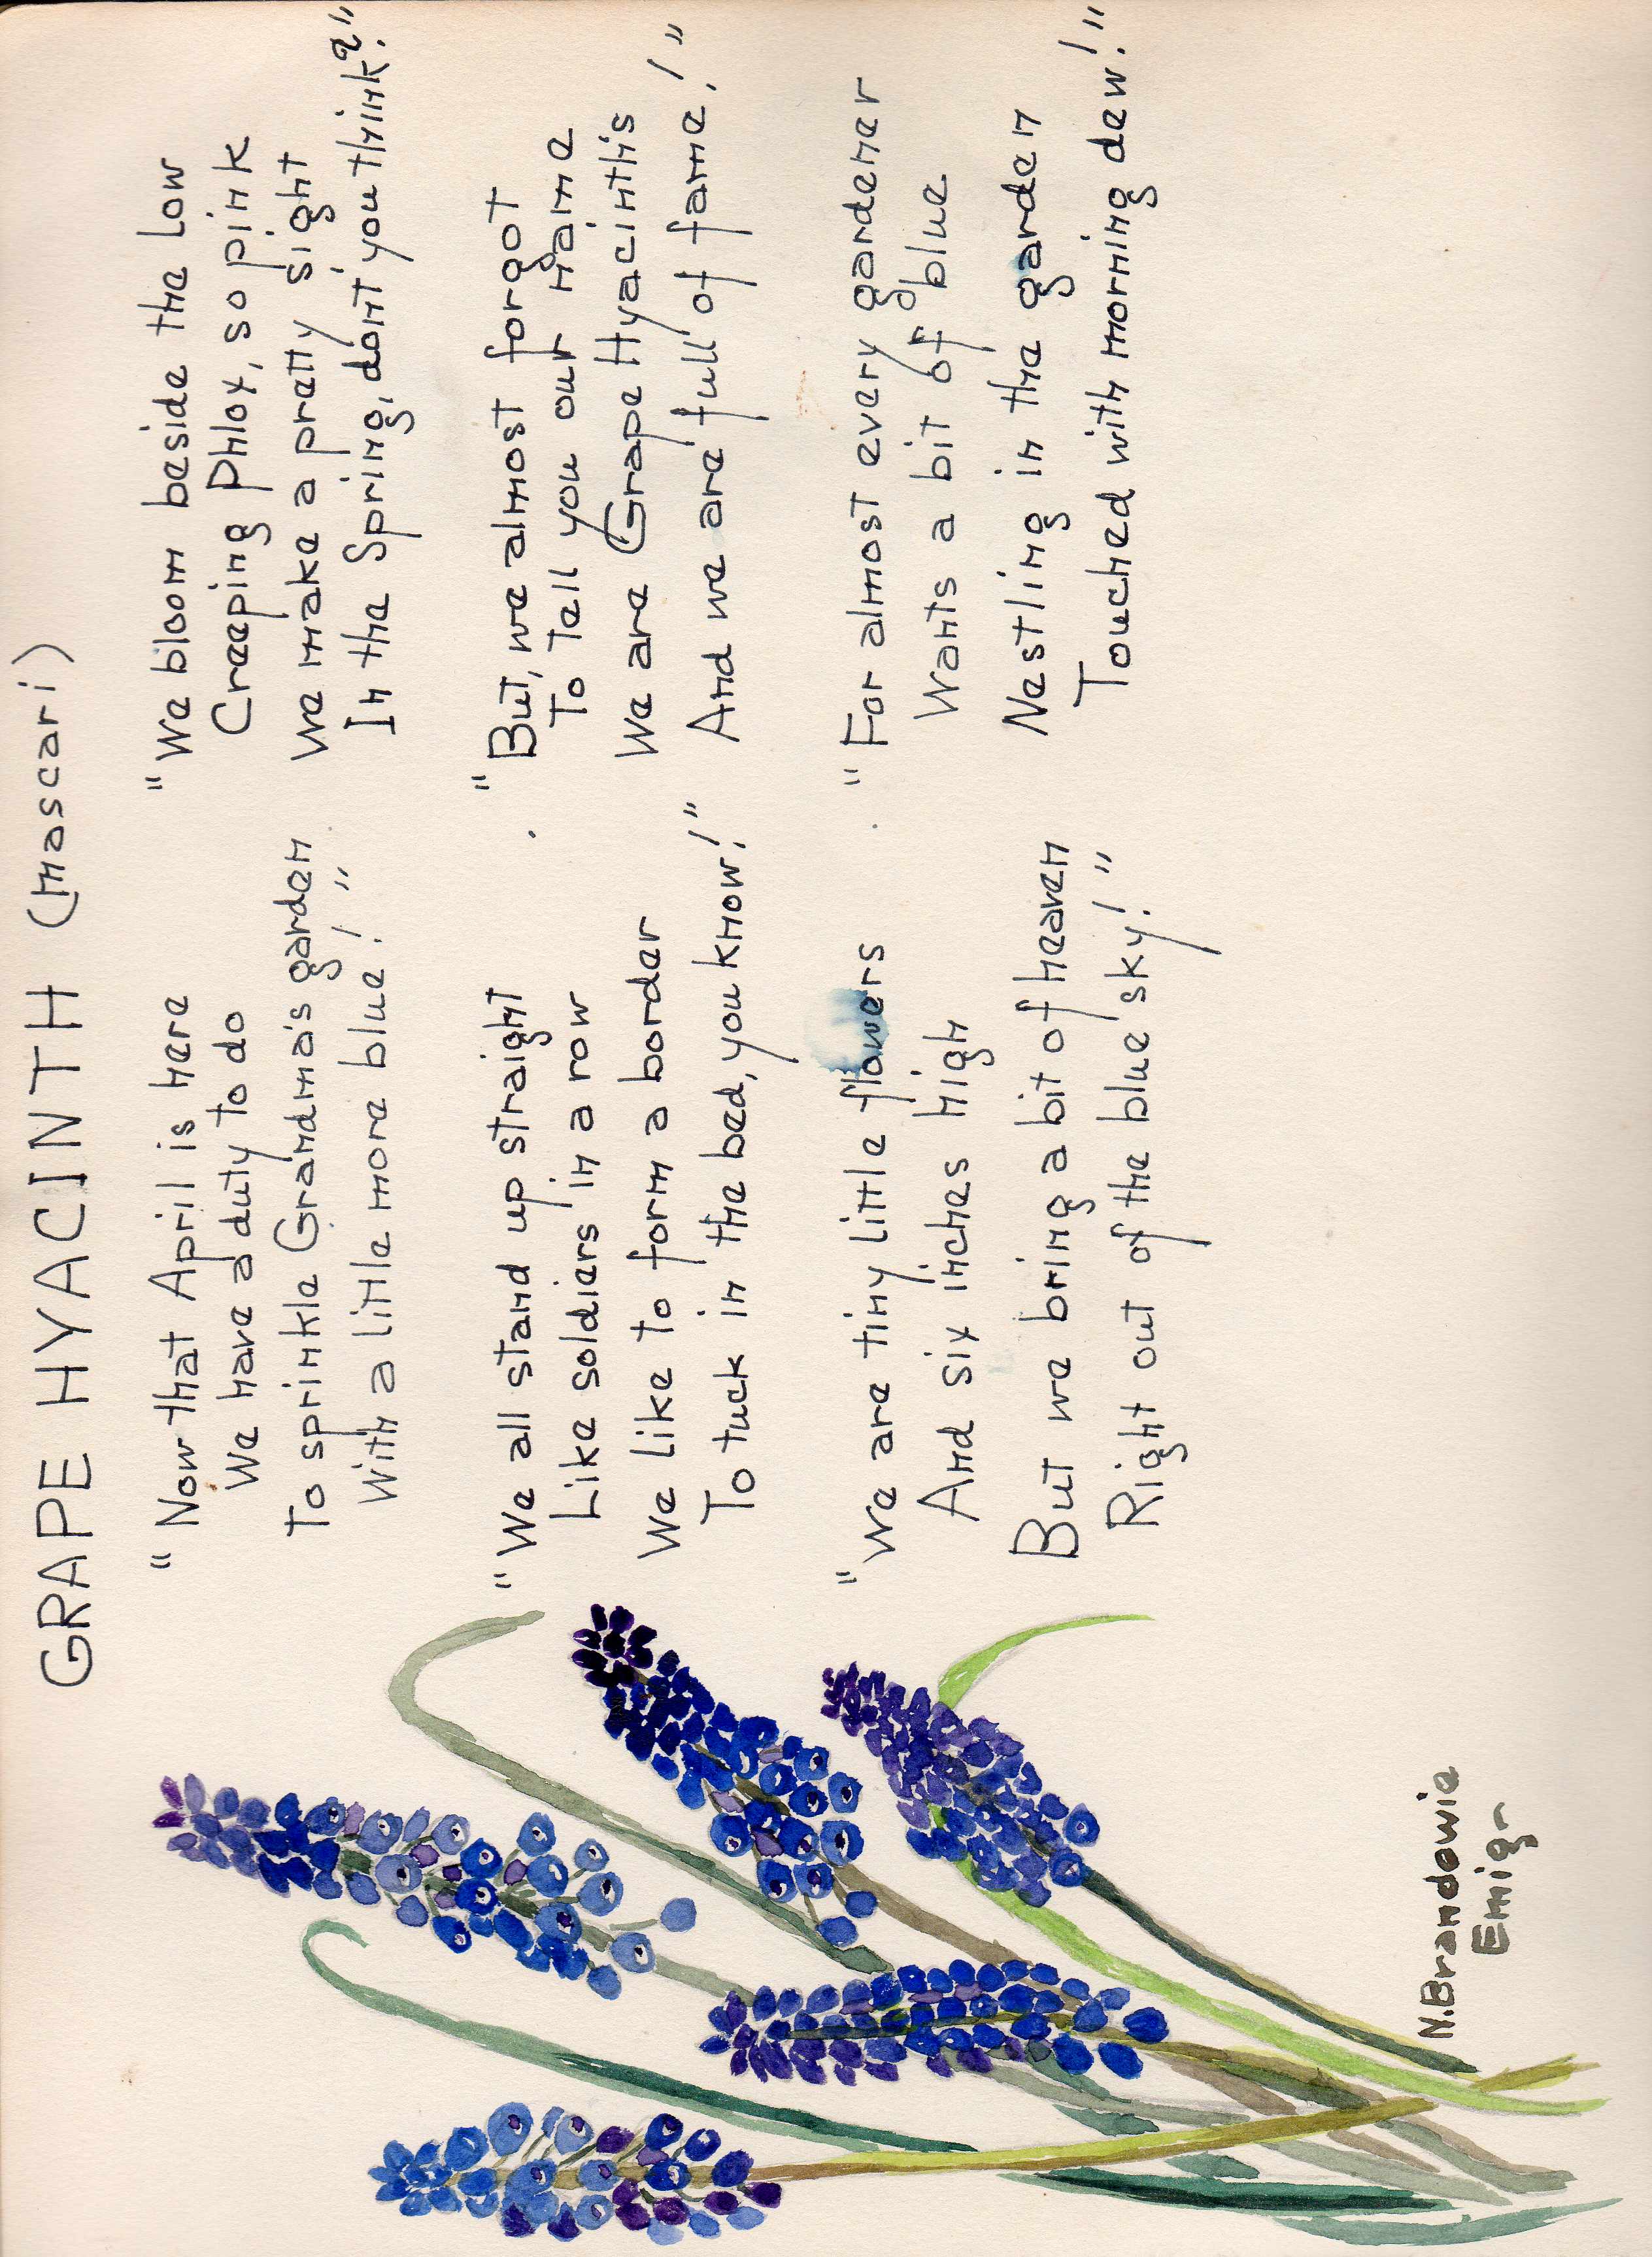 GRAPE HYACINTH (mascari)
"Now that April is here
We have a duty to do
To sprinkle Grandma's garden
With a little more blue!"
"We all stand up straight
Like soldiers in a row
We like to form a border
To tuck in the bed, you know!"
"We are tiny little flowers
And six inches high
But we bring a bit of heaven
Right out of the blue sky!"
"We bloom beside the low
Creeping Phlox, so pink
We make a pretty sight
In the Spring, don't you think?"
"But, we almost forgot
To tell you our name
We are Grape Hyacinth's
And we are full of fame!"
"For almost every gardener
Wants a bit of blue
Nestling in the garden
Touched with morning dew!"
N. Brandowie
Emig-